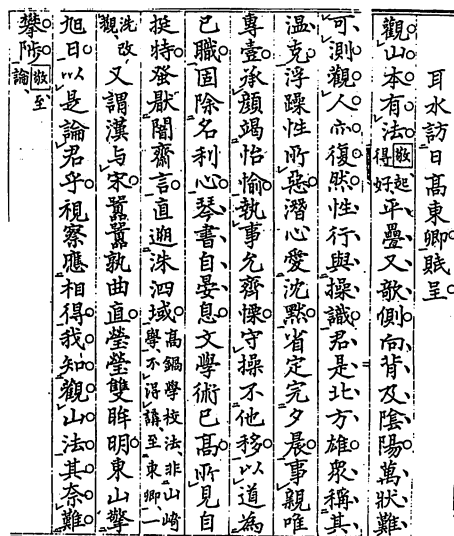 耳水訪日高東卿賦呈
觀山本有法敬起得好平疊又欹側向背及陰陽萬狀難
可測觀人亦復然性行與操識君是北方雄衆稱其
温克浮躁性所惡潛心愛沈默省定完夕晨事親唯
專壹承顔竭怡愉執事允齊慄守操不他移以道為
已職固除名利心琴書自晏息文學術已高所見自
挺特發厭闇齋言直遡洙泗域高鍋學校法非山崎學不得講至東卿一
洗改觀又謂漢与宋囂囂孰曲直瑩瑩雙眸明東山擎
旭日以是論君乎視察應相得我知觀山法其奈難
攀陟敬至論